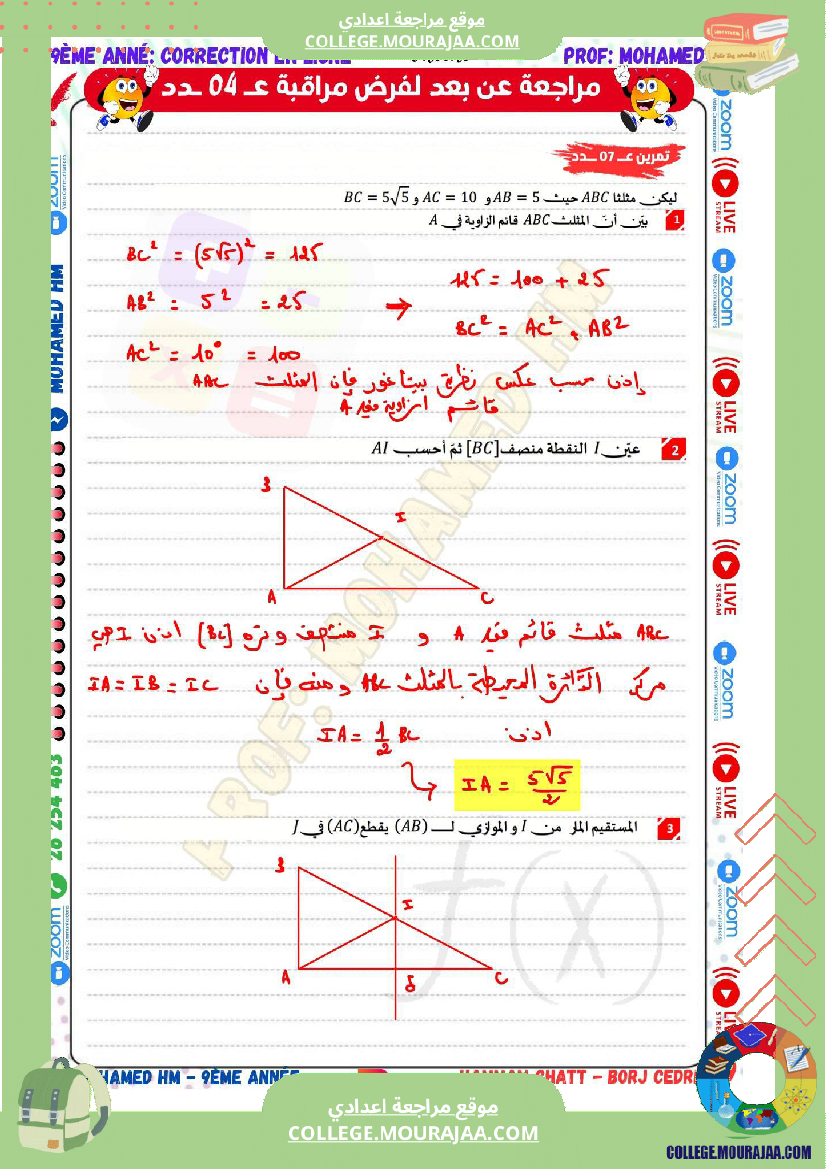 موقع مراجعة اعدادي
COLLEGE.MOURAJAA.COM
9ÈME ANNÉ: CORRECTION EN LIGNE
PROF: MOHAMED
مراجعة عن بعد لفرض مراقبة عـ 04 ـدد
تمرين عـ 07 ـدد
ليكن مثلثا ABC حيث AB = 5 و AC = 10 و BC = 5√5
1 بيّن أنّ المثلث ABC قائم الزاوية في A
BC² = (5√5)² = 125
AB² = 5² = 25
AC² = 10° = 100
→
125 = 100 + 25
BC² = AC² + AB²
إذن حسب عكس نظرية بيتاغور فإن المثلث ABC
قائم الزاوية في A
2 عيّن I النقطة منصف [BC] ثمّ أحسب AI
B
I
A
C
ABC مثلث قائم في A و I منتصف وتره [BC] اذن I هي
مركز الدّائرة المحيطة بالمثلث ABC ومنه فإن IA = IB = IC
اذن IA = 1/2 BC
IA = 5√5/2
3 المستقيم المار من I و الموازي لـ (AB) يقطع (AC) في J
B
I
A
J
C
zoom
Video Communications
LIVE
STREAM
MOHAMED HM
28 254 403
PROF: MOHAMED HM
f(x)
MOHAMED HM - 9ÈME ANNÉE
HAMMAM CHATT - BORJ CEDRIA
موقع مراجعة اعدادي
COLLEGE.MOURAJAA.COM
COLLEGE.MOURAJAA.COM